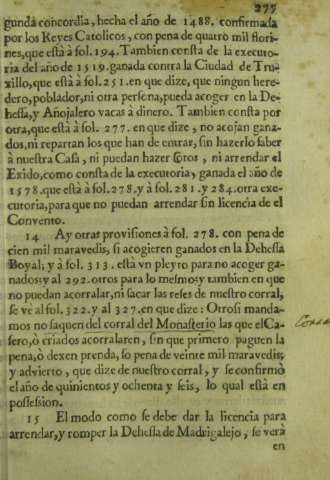 277
gunda concordia, hecha el año de 1488. confirmada
por los Reyes Catolicos, con pena de quatro mil flori-
nes, que està à fol. 194. Tambien consta de la executo-
ria del año de 1519. ganada contra la Ciudad de Tru-
xillo, que està à fol. 251. en que dize, que ningun here-
dero, poblador, ni otra persona, pueda acoger en la De-
hessa, y Añojalero vacas à dinero. Tambien consta por
otra, que està à fol. 277. en que dize, no acojan gana-
dos, ni repartan los que han de entrar, sin hazerlo saber
à nuestra Casa, ni puedan hazer Cotos, ni arrendar el
Exido, como consta de la executoria, ganada el año de
1578. que està à fol. 278. y à fol. 281. y 284. otra exe-
cutoria, para que no puedan arrendar sin licencia de el
Convento.
14 Ay otras provisiones à fol. 278. con pena de
cien mil maravedis, si acogieren ganados en la Dehessa
Boyal, y à fol. 313. està vn pleyto para no acoger ga-
nados: y al 292. otros para lo mesmo: y tambien en que
no puedan acorralar, ni sacar las reses de nuestro corral,
se ve al fol. 322. y al 327. en que dize: Otrosi manda-
mos no saquen del corral del Monasterio las que el Ca-
sero, ò criados acorralaren, sin que primero paguen la
pena, ò dexen prenda, so pena de veinte mil maravedis;
y advierto, que dize de nuestro corral, y se confirmò
el año de quinientos y ochenta y seis, lo qual està en
possession.
15 El modo como se debe dar la licencia para
arrendar, y romper la Dehessa de Madrigalejo, se verà
en